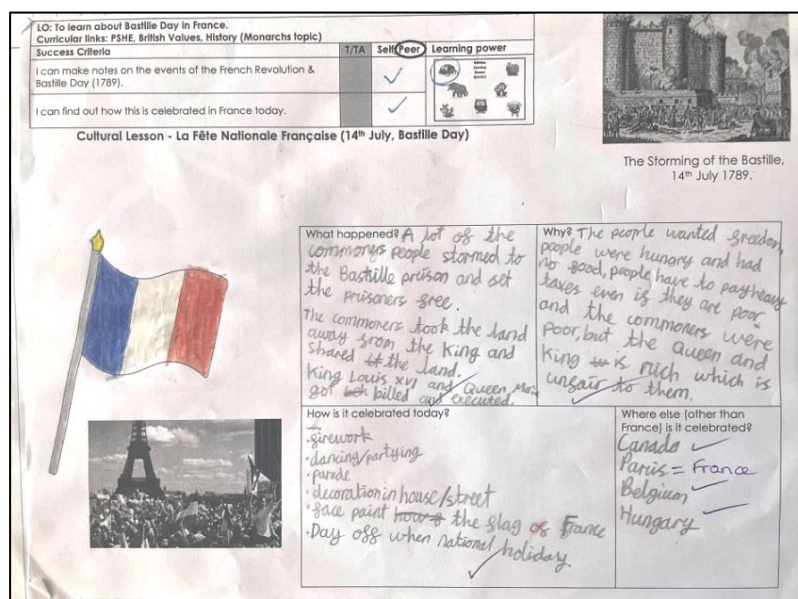 LO: To learn about Bastille Day in France.
Curricular links: PSHE, British Values, History (Monarchs topic)
Success Criteria T/TA Self/Peer Learning power
I can make notes on the events of the French Revolution &
Bastille Day (1789).
I can find out how this is celebrated in France today.
Cultural Lesson - La Fête Nationale Française (14th July, Bastille Day)
The Storming of the Bastille,
14th July 1789.
What happened? A lot of the
commoners people stormed to
the Bastille prison and set
the prisoners free.
The commoners took the land
away from the King and
shared it the land.
King Louis XVI and Queen Mari
got killed and executed.
Why? The people wanted freedom,
people were hungry and had
no food, people have to pay heavy
taxes even if they are poor
and the commoners were
poor, but the Queen and
King is rich which is
unfair to them.
How is it celebrated today?
·firework
·dancing/partying
·parade
·decoration in house/street
·face paint the flag of France
·Day off when national holiday.
Where else (other than
France) is it celebrated?
Canada
Paris = France
Belgium
Hungary